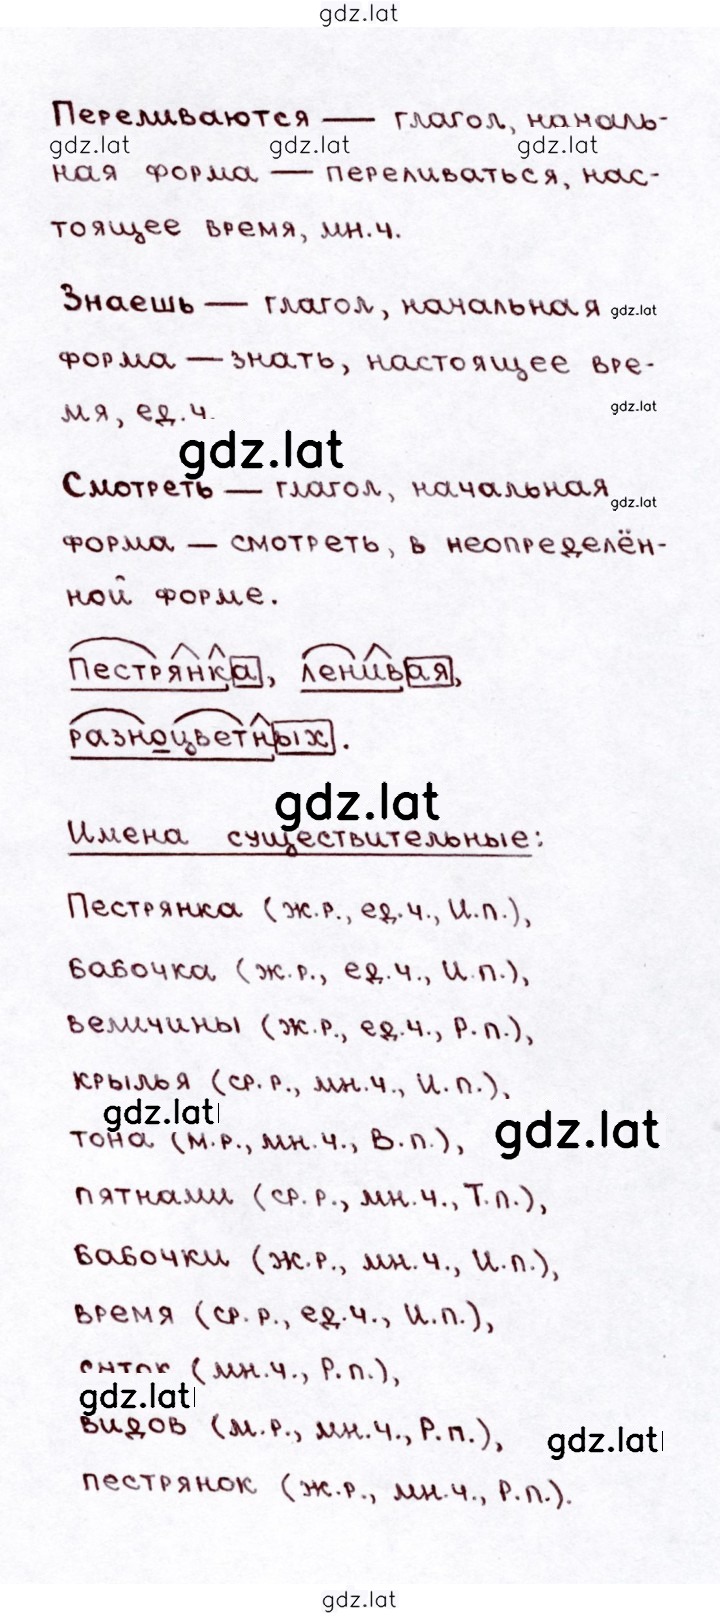 gdz.lat
Переливаются — глагол, началь-
gdz.lat gdz.lat gdz.lat
ная форма — переливаться, нас-
тоящее время, мн.ч.
Знаешь — глагол, начальная
gdz.lat
форма — знать, настоящее вре-
gdz.lat
мя, ед.ч.
gdz.lat
Смотреть — глагол, начальная
gdz.lat
форма — смотреть, в неопределён-
ной форме.
Пестрянка, ленивая,
разноцветных.
gdz.lat
Имена существительные:
Пестрянка (ж.р., ед.ч., И.п.),
бабочка (ж.р., ед.ч., И.п.),
величины (ж.р., ед.ч., Р.п.),
крылья (ср.р., мн.ч., И.п.),
gdz.lat
gdz.lat
тона (м.р., мн.ч., В.п.),
пятнами (ср.р., мн.ч., Т.п.),
бабочки (ж.р., мн.ч., И.п.),
время (ср.р., ед.ч., И.п.),
суток (мн.ч., Р.п.),
gdz.lat
видов (м.р., мн.ч., Р.п.),
gdz.lat
пестрянок (ж.р., мн.ч., Р.п.).
gdz.lat